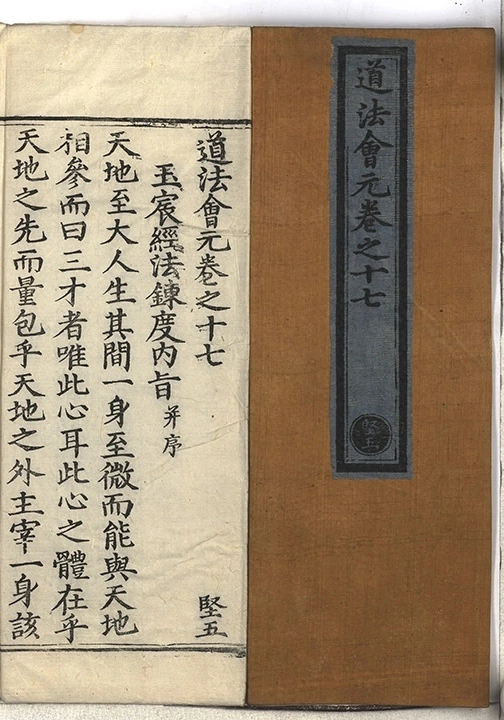 道法會元卷之十七
堅五
道法會元卷之十七
堅五
玉宸經法鍊度內旨并序
天地至大人生其間一身至微而能與天地
相參而曰三才者唯此心耳此心之體在乎
天地之先而量包乎天地之外主宰一身該